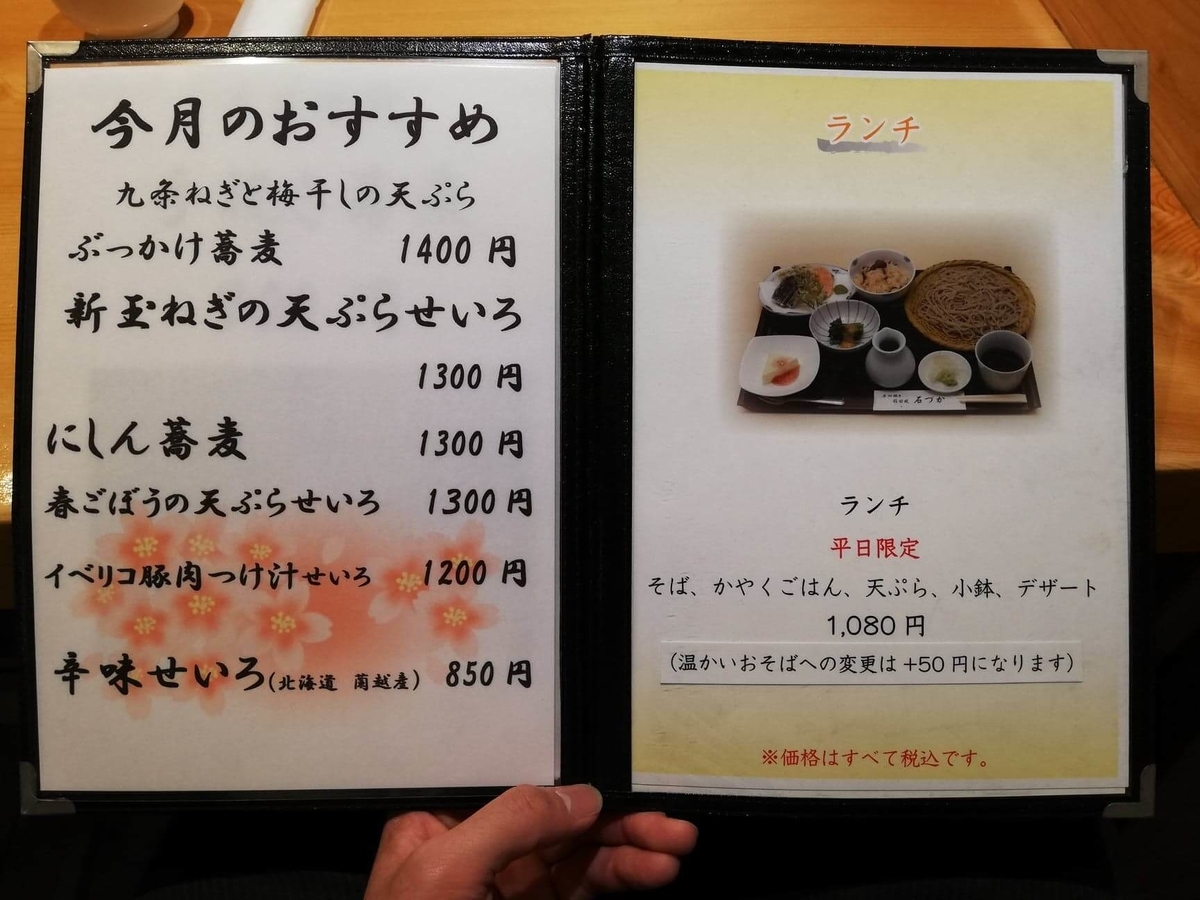 今月のおすすめ
九条ねぎと梅干しの天ぷら
ぶっかけ蕎麦 1400円
新玉ねぎの天ぷらせいろ
1300円
にしん蕎麦 1300円
春ごぼうの天ぷらせいろ 1300円
イベリコ豚肉つけ汁せいろ 1200円
辛味せいろ(北海道 蘭越産) 850円
ランチ
石づか
ランチ
平日限定
そば、かやくごはん、天ぷら、小鉢、デザート
1,080円
(温かいおそばへの変更は+50円になります)
※価格はすべて税込です。